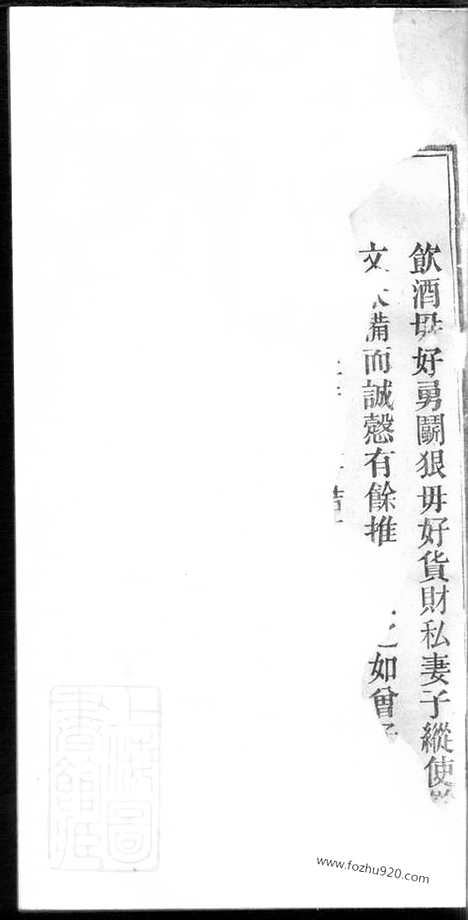 飲酒毋好勇鬭狠毋好貨財私妻子縱使
文備而誠慤有餘推之如曾
www.fozhu920.com